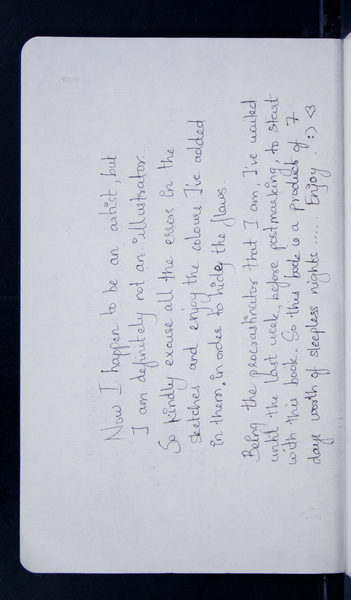 Now I happen to be an artist, but
I am definitely not an illustrator.
So kindly excuse all the errors in the
sketches and enjoy the colours I've added
in them. in order to hide the flaws..
Being the procrastinator that I am, I've waited
until the last week, before postmarking, to start
with this book. So this book is a product of 7
days worth of sleepless nights ...... Enjoy! :) <3